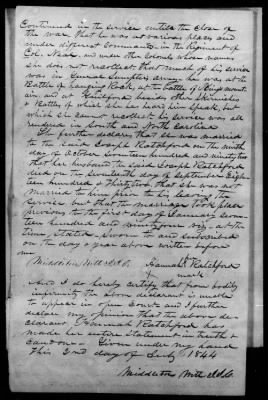 Continued in the service untill the close of
the war, that he was at various places and
under different commands in the Regiment of
Col. and under other Colonels whose names
she does not recollect that much of his service
was in General Sumpters army he was at the
Battle of hanging Rock, at the battle of Kings mount-
ain and at Guilford besides other Skirmishes
& Battles of which she has heard him Speak, but
which she cannot recollect his service was all
rendered in South and North Carolina
She further declares that she was married
to the said Joseph Ratchford on the ninth
day of October Seventeen hundred and ninety two
that her husband the said Joseph Ratchford
died on the Seventeenth day of September Eigh-
teen hundred & Thirty two, that she was not
married to him prior to his leaving the
service but that the marriage took place
previous to the first day of January seven-
teen hundred and ninty four viz. at the
time Stated, Sworn to and subscribed
on the day & year above written before
me
Hannah Ratchford
mark
And I do hereby certify that from bodily
infirmity the above declarant is unable
to appear in open Court and I further
declare my opinion that the above de-
clarant Hannah Ratchford has
made her entire Statement in truth &
candour — Given under my hand
This 2nd day of July 1844